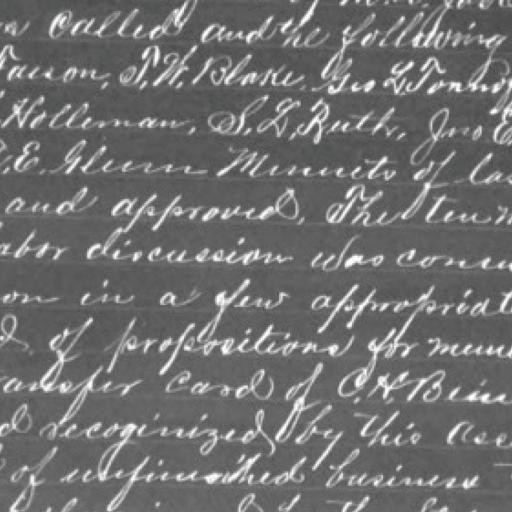 called and the following
Faison, T. W. Blake. Geo L Tonnof
Holleman, S. L, Ruth, Jno E
E. Glenn Minnits of las
and approved. The ten m
abor discussion was concu
on in a few appropriat
d. of propositions for mem
ransfer card of C. H. Bim
d recoginized by this ass
of unfinished business